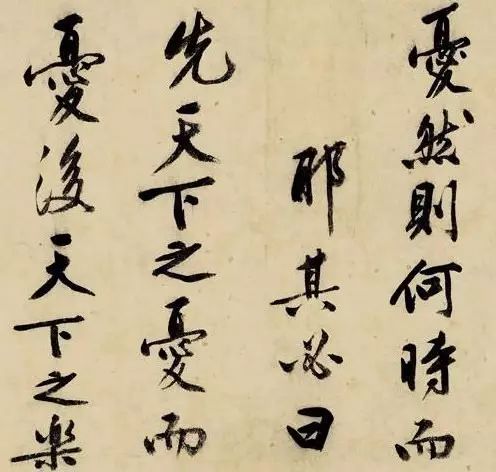 憂然則何時而
耶其必曰
先天下之憂而
憂後天下之楽